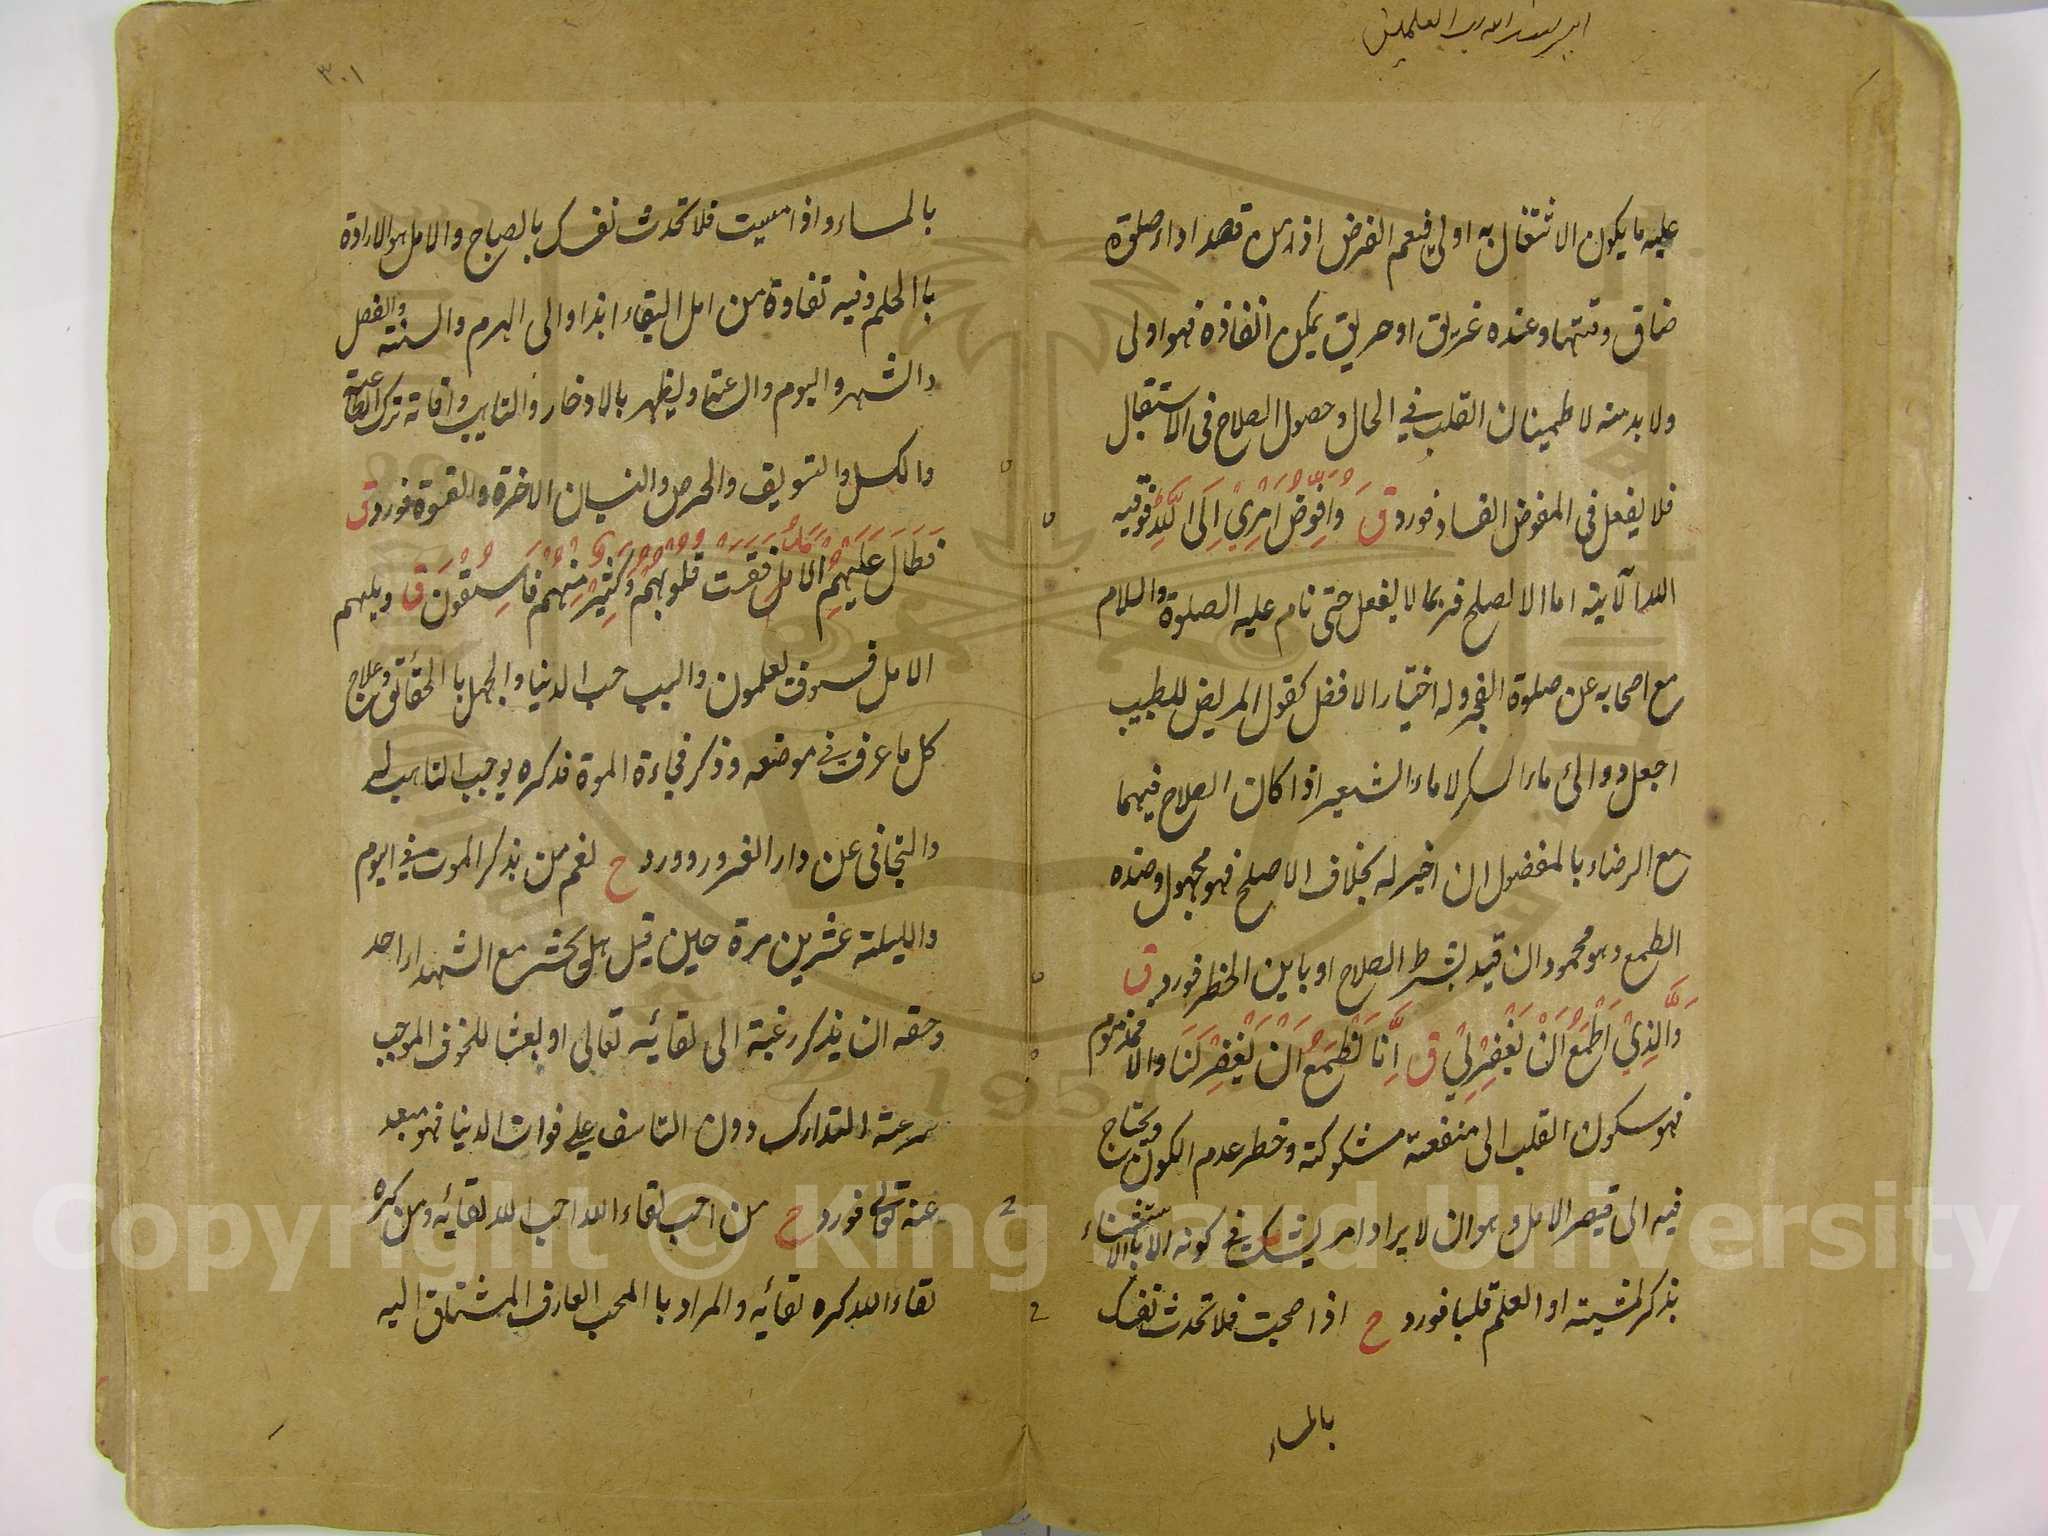 عليه ما يكون الاشتغال به اولى فيعم الفرض اذ من قصد اداء صلوة
ضاق وقتها وعنده غريق او حريق يمكن انقاذه فهو اولى
ولا بد منه لاطمينان القلب في الحال وحصول الصلاح فى الاستقبال
فلا يفعل فى المفوض الفساد فورد ق وَاُفَوِّضُ اَمْرِيْ اِلَى اللّٰهِ فوقيه
الله الآية اما الاصلح فربما لا يفعل حتى نام عليه الصلوة والسلام
مع اصحابه عن صلوة الفجر وله اختيار الافضل كقول المريض للطبيب
اجعل دوائى ماء السكر لا ماء الشعير اذا كان الصلاح فيهما
مع الرضاء بالمفضول ان اختير له بخلاف الاصلح فهو مجهول وضده
الطمع وهو محمود ان قيد بشرط الصلاح او باين الخطر فورد ق
وَالَّذِيْ اَطْمَعُ اَنْ يَغْفِرَ لِيْ ق اِنَّا نَطْمَعُ اَنْ يَغْفِرَ لَنَا والا فمذموم
فهو سكون القلب الى منفعة مشكوكة وخطر عدم الكون ويحتاج
فيه الى قصر الامل وهو ان لا يراد امر يشك في كونه الا بالاستثناء
بذكر المشية او العلم قلبا فورد ح اذا اصبحت فلا تحدث نفسك
بالمساء
٣٠١
بالمساء واذا امسيت فلا تحدث نفسك بالصباح والامل هو الارادة
بالحلم وفيه تفاوة من امل البقاء ابدا او الى الهرم والسنة والفصل
والشهر واليوم والساعة ويظهر بالادخار والتاهب وافاته ترك الطاعة
والكسل والتسويف والحرص والنسيان الاخرة والقسوة فورد ق
فَطَالَ عَلَيْهِمُ الاَمَلُ فَقَسَتْ قُلُوْبُهُمْ وَكَثِيْرٌ مِنْهُمْ فَاسِقُوْنَ ق ويلههم
الامل فسوف يعلمون والسبب حب الدنيا والجهل بالحقائق وعلاج
كل ما عرف في موضعه وذكر فجاءة الموة فذكره يوجب التاهب له
والتجافى عن دار الغرور وورد ح نعم من يذكر الموت في اليوم
والليلة عشرين مرة حين قيل هل يحشر مع الشهداء احد
وحقه ان يذكر رغبة الى لقائه تعالى او بعثا للخوف الموجب
سرعة التدارك دون التاسف على فوات الدنيا فهو مبعد
عنه تعالى فورد ح من احب لقاء الله احب الله لقائه ومن كره
لقاء الله كره لقائه والمراد با المحب العارف المشتاق اليه